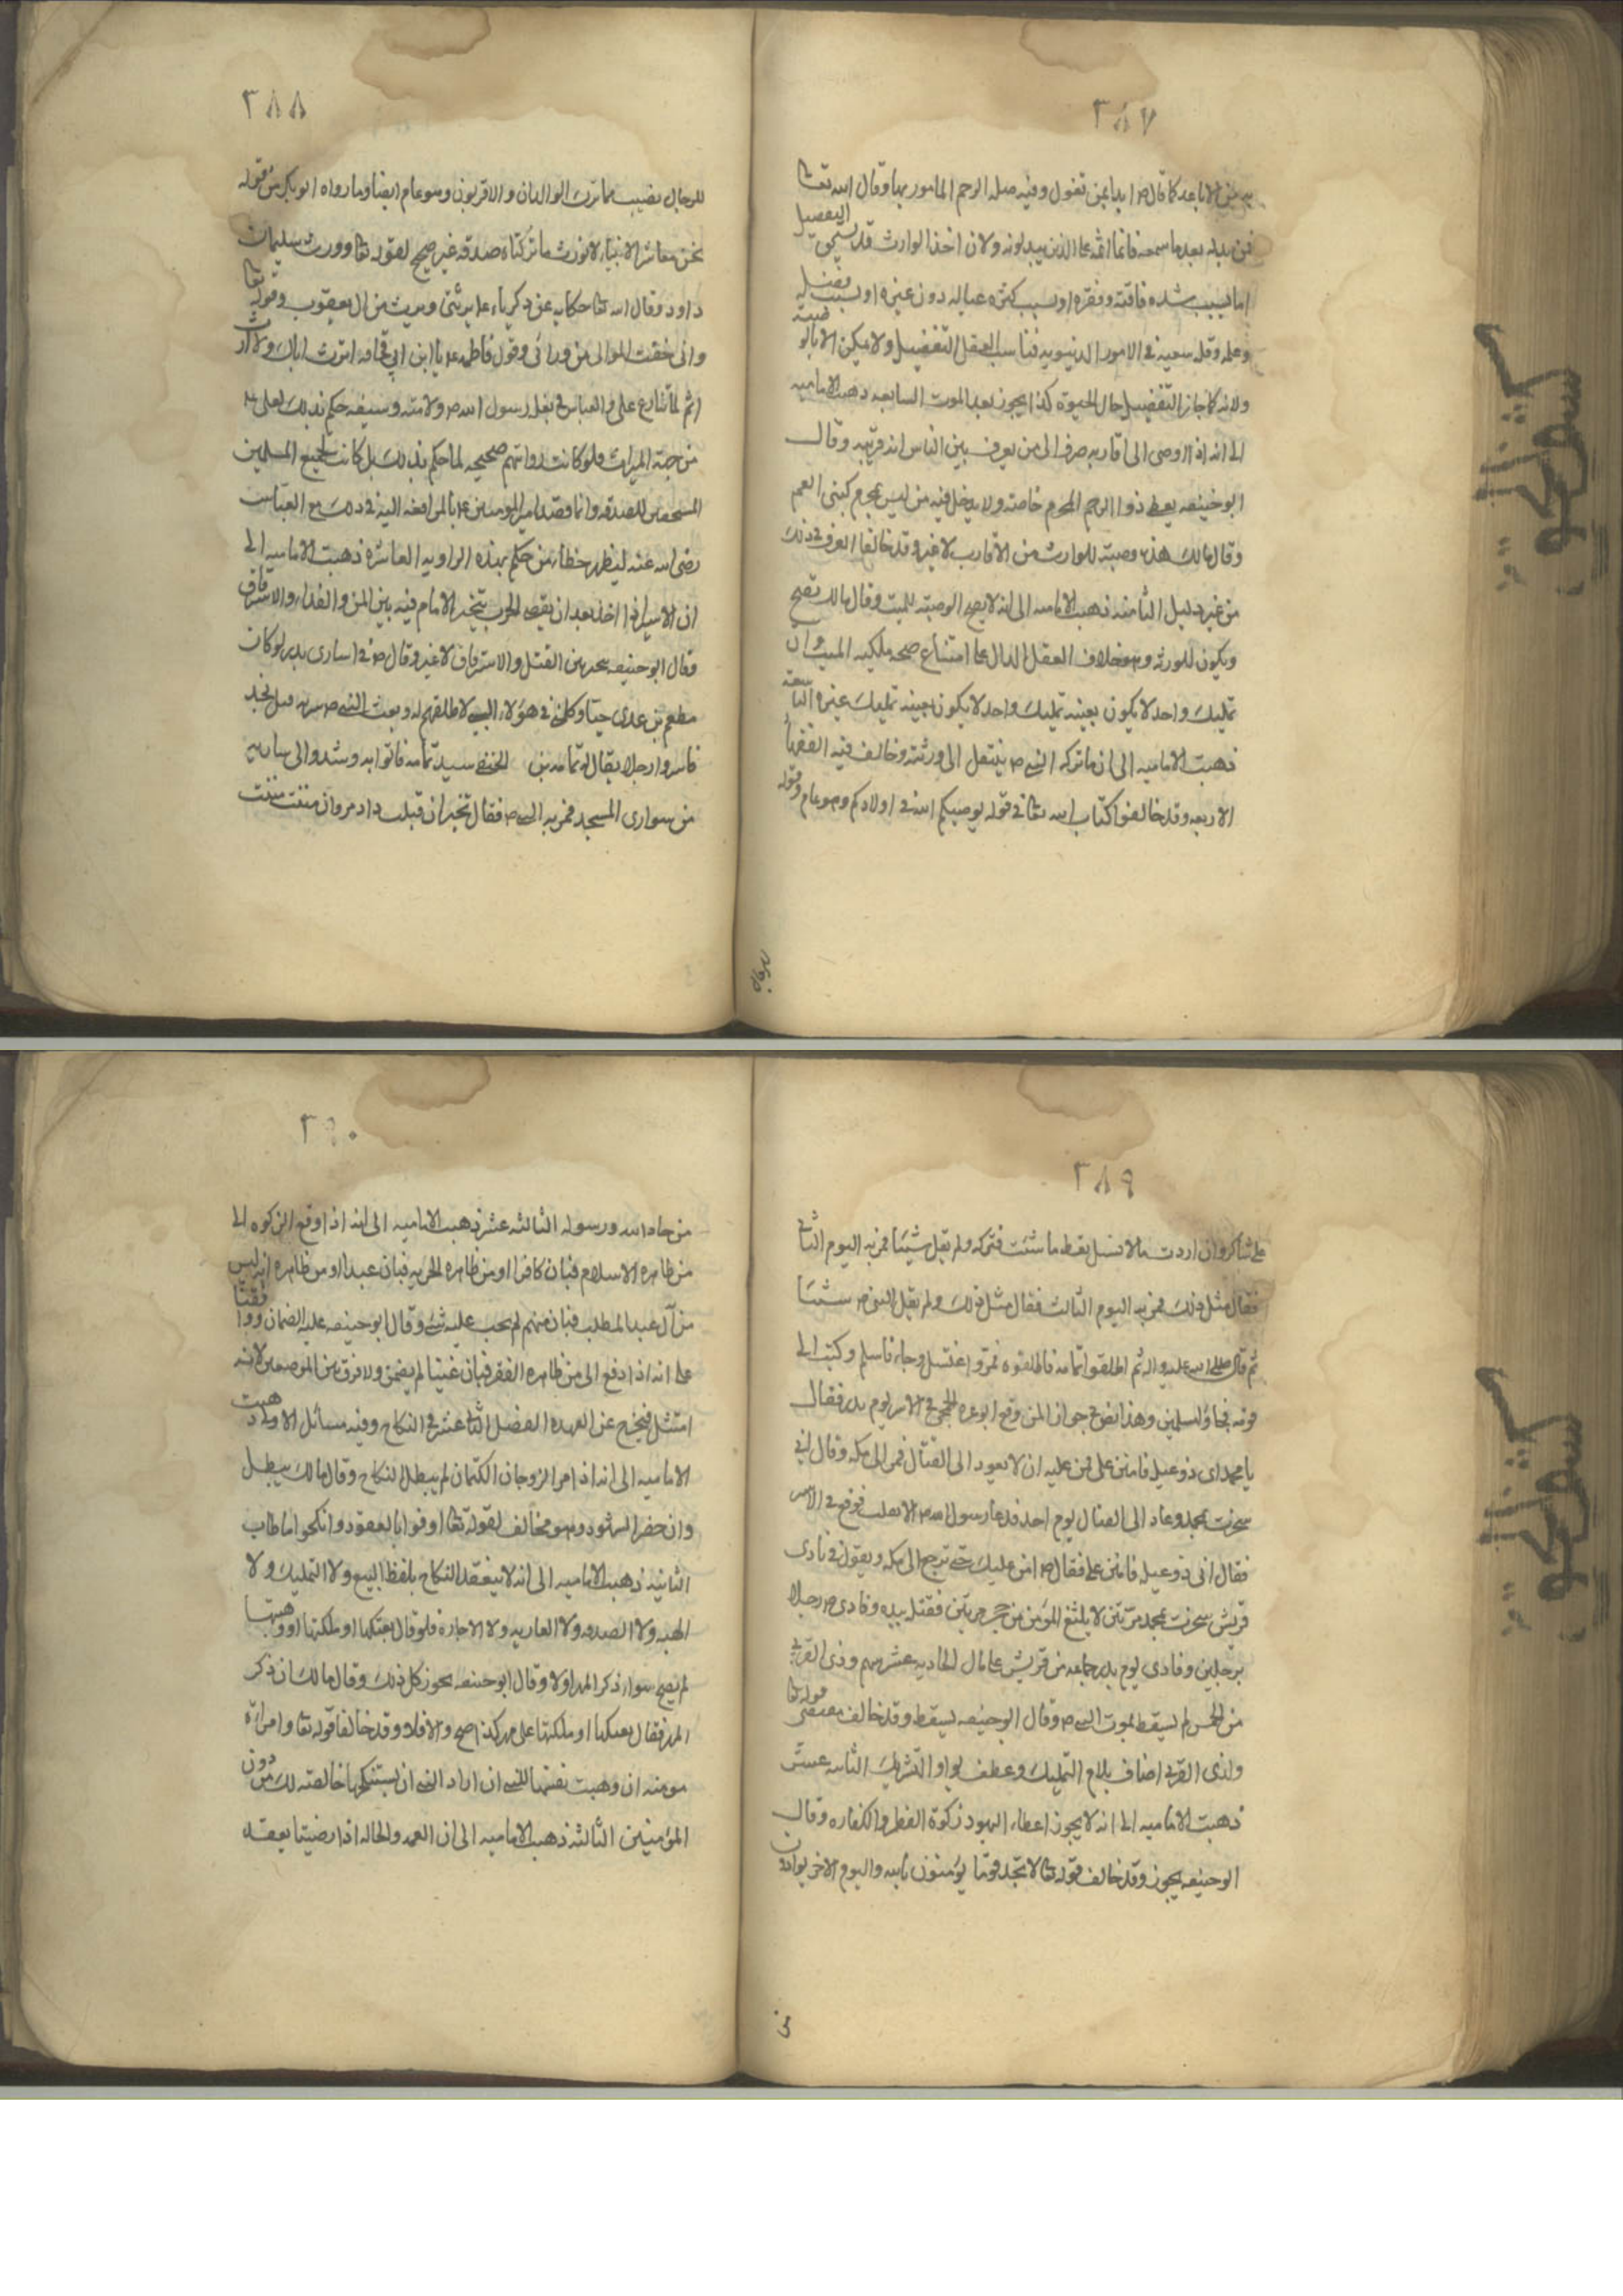 ٣٨٧
من الاباعد كما قال ص ابدا بمن تعول وفيه صلة الرحم المامور بها وقال الله تعا
فمن بدله بعد ما سمعه فانما اثمه على الذين يبدلونه ولان اخذ الوارث قد التفضيل
اما بسبب شده فاقته وفقره او بسبب كثره عياله دون غيره او بسبب فضله
وعلمه وقله سعيه في الامور الدنيويه فناسب العقل التفضيل ولا يمكن الا بالوصية
ولانه كما جاز التفضيل حال الحيوة كذا يجوز بعد الموت السابعه ذهبت الاماميه
الى انه اذا اوصى الى اقاربه صرف الى من يعرف بين الناس انه قريبه وقال
ابو حنيفه يعطى ذوا الرحم المحرم خاصة ولا يدخل فيه من ليس بمحرم كبنى العم
وقال مالك هذه وصيته للوارث من الاقارب لا غير وقد خالفا العرف في ذلك
من غير دليل الثامنه ذهبت الاماميه الى انه لا يصح الوصيته للميت وقال مالك تصح
ويكون للورثه وهو خلاف العقل الدال على امتناع صحه ملكيه الميت وان
تمليك واحد لا يكون بعينه تمليك واحد لا يكون بعينه تمليك غيره التاسعة
ذهبت الاماميه الى ان ما تركه النبي ص ينتقل الى ورثته وخالف فيه الفقهاء
الاربعه وقد خالفوا كتاب الله تعا في قوله يوصيكم الله في اولادكم وهو عام وقوله
للرجال
٣٨٨
للرجال نصيب مما ترك الوالدان والاقربون وهو عام ايضا وما رواه ابو بكر من قوله
نحن معاشر الانبياء لا نورث ما تركناه صدقه غير صحيح لقوله تعا وورث سليمان
داود وقال الله تعا حكايه عن زكرياء ع يرثنى ويرث من ال يعقوب وقوله تعا
وانى خفت الموالى من ورائى وقول فاطمه ع يا ابن ابي قحافه اترث اباك ولا ارث
ثم لما تنازع على والعباس في بغل رسول الله ص ولامته وسيفه حكم بذلك لعلى ع
من جهة الميراث ولو كانت رواتهم صحيحه لما حكم بذلك بل كانت لجميع المسلمين
المستحقين للصدقه وانما قصد امير المومنين ع بالمرافعه اليه في ذلك مع العباس
رضى الله عنه ليظهر خطاء من حكم بهذه الراويه العاشره ذهبت الاماميه الى
ان الاسير اذا اخذ بعد ان يقضى الحرب يتخير الامام فيه بين المن والفداء والاسترقاق
وقال ابو حنيفه يتخير بين القتل والاسترقاق لا غير وقال ص في اسارى بدر لو كان
مطعم بن عدى حيا وكلمنى في هؤلاء السبي لاطلقتهم له وبعث النبي ص سريه قبل نجد
فاسروا رجلا يقال له ثمامه بن الحنفى سيد ثمامه فاتوا به وشدوا الى ساريه
من سوارى المسجد فمر به النبي ص فقال تخير ان قبلت ذا دم وان مننت مننت
٣٨٩
على شاكر وان اردت مالا فسل يعط ما شئت فتركه ولم يقل شيئا فمر به اليوم الثانى
فقال مثل ذلك فمر به اليوم الثالث فقال مثل ذلك ولم يقل النبي ص شيئا
ثم قال صلى الله عليه واله ثم اطلقوا ثمامه فاطلقوه فمر واغتسل وجاء فاسلم وكتب الى
قومه فجاؤا مسلمين وهذا نص في جواز المن وقع ابو عزه الجمحي في الاسر يوم بدر فقال
يا محمد اى ذو عيله فامنن على فمن عليه ان لا يعود الى القتال فمر الى مكه وقال انى
سخرت بمحمد وعاد الى القتال يوم احد فدعا رسول الله ص ان لا يفلت فوقع في الاسر
فقال انى ذو عيله فامنن على فقال ص امن عليك حتى ترجع الى مكه ويقول في نادى
قريش سخرت بمحمد مرتين لا يلثغ المؤمن من جحر مرتين فقتله بيده وفادى ص رجلا
برجلين وفادى يوم بدر جماعه من قريش على مال الحاديه عشر سهم وذى القربى
من الخمس لم يسقط بموت النبي ص وقال ابو حنيفه يسقط وقد خالف مقتضى قوله تعا
ولذى القربى اضاف بلام التمليك وعطف بواو التشريك الثانيه عشر
ذهبت الاماميه الى انه لا يجوز اعطاء اليهود زكوة الفطر والكفاره وقال
ابو حنيفه يجوز وقد خالف قوله تعا لا تجد قوما يؤمنون بالله واليوم الاخر يوادون
من
٣٩٠
من حاد الله ورسوله الثالثه عشر ذهبت الاماميه الى انه اذا وقع الزكوه الى
من ظاهره الاسلام فبان كافرا او من ظاهره الحريه فبان عبدا او من ظاهره انه ليس
من آل عبد المطلب فبان منهم لم يجب عليه شئ وقال ابو حنيفه عليه الضمان ووافقنا
على انه اذا دفع الى من ظاهره الفقر فبان غنيا لم يضمن ولا فرق بين الموضعين لانه
امتثل فيخرج عن العهده الفصل الثانى عشر في النكاح وفيه مسائل الاولى ذهبت
الاماميه الى انه اذا امر الزوجان الكتمان لم يبطل النكاح وقال مالك يبطل
وان حضر الشهود وهو مخالف لقوله تعا اوفوا بالعقود وانكحوا ما طاب
الثانيه ذهبت الاماميه الى انه لا ينعقد النكاح بلفظ البيع ولا التمليك ولا
الهبه ولا الصدقه ولا العاريه ولا الاجاره فلو قال بعتكها او ملكتها او وهبتها
لم يصح سواء ذكر المهر اولا وقال ابو حنيفه يجوز كل ذلك وقال مالك ان ذكر
المهر فقال بعتكها او ملكتها على مهر كذا صح والا فلا وقد خالفا قوله تعا وامراة
مومنه ان وهبت نفسها للنبي ان اراد النبي ان يستنكحها خالصه لك من دون
المؤمنين الثالثه ذهبت الاماميه الى ان العمه والخاله اذا رضيتا بعقد